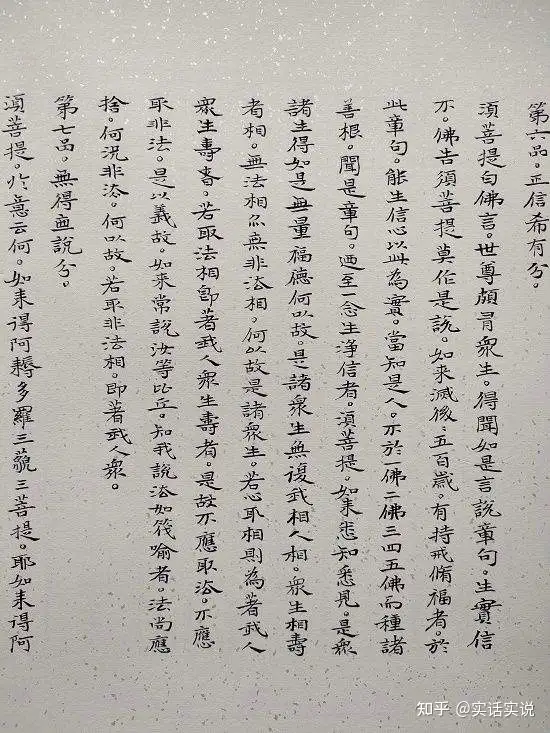 第六品。正信希有分。
須菩提白佛言。世尊頗有眾生。得聞如是言說章句。生實信
不。佛告須菩提莫作是說。如來滅後。五百歲。有持戒脩福者。於
此章句。能生信心以此為實。當知是人。不於一佛二佛三四五佛而種諸
善根。聞是章句。乃至一念生淨信者。須菩提。如来悉知悉見。是眾
諸生得如是無量福德何以故。是諸眾生無復我相人相。眾生相壽
者相。無法相亦無非法相。何以故是諸眾生。若心取相則為著我人
眾生壽者。若取法相即著我人眾生壽者。是故不應取法。不應
取非法。是以義故。如来常說汝等比丘。知我說法如筏喻者。法尚應
捨。何況非法。何以故。若取非法相。即著我人眾。
第七品。無得無說分。
須菩提。於意云何。如来得阿耨多羅三藐三菩提。耶如来得阿
知乎 @实话实说